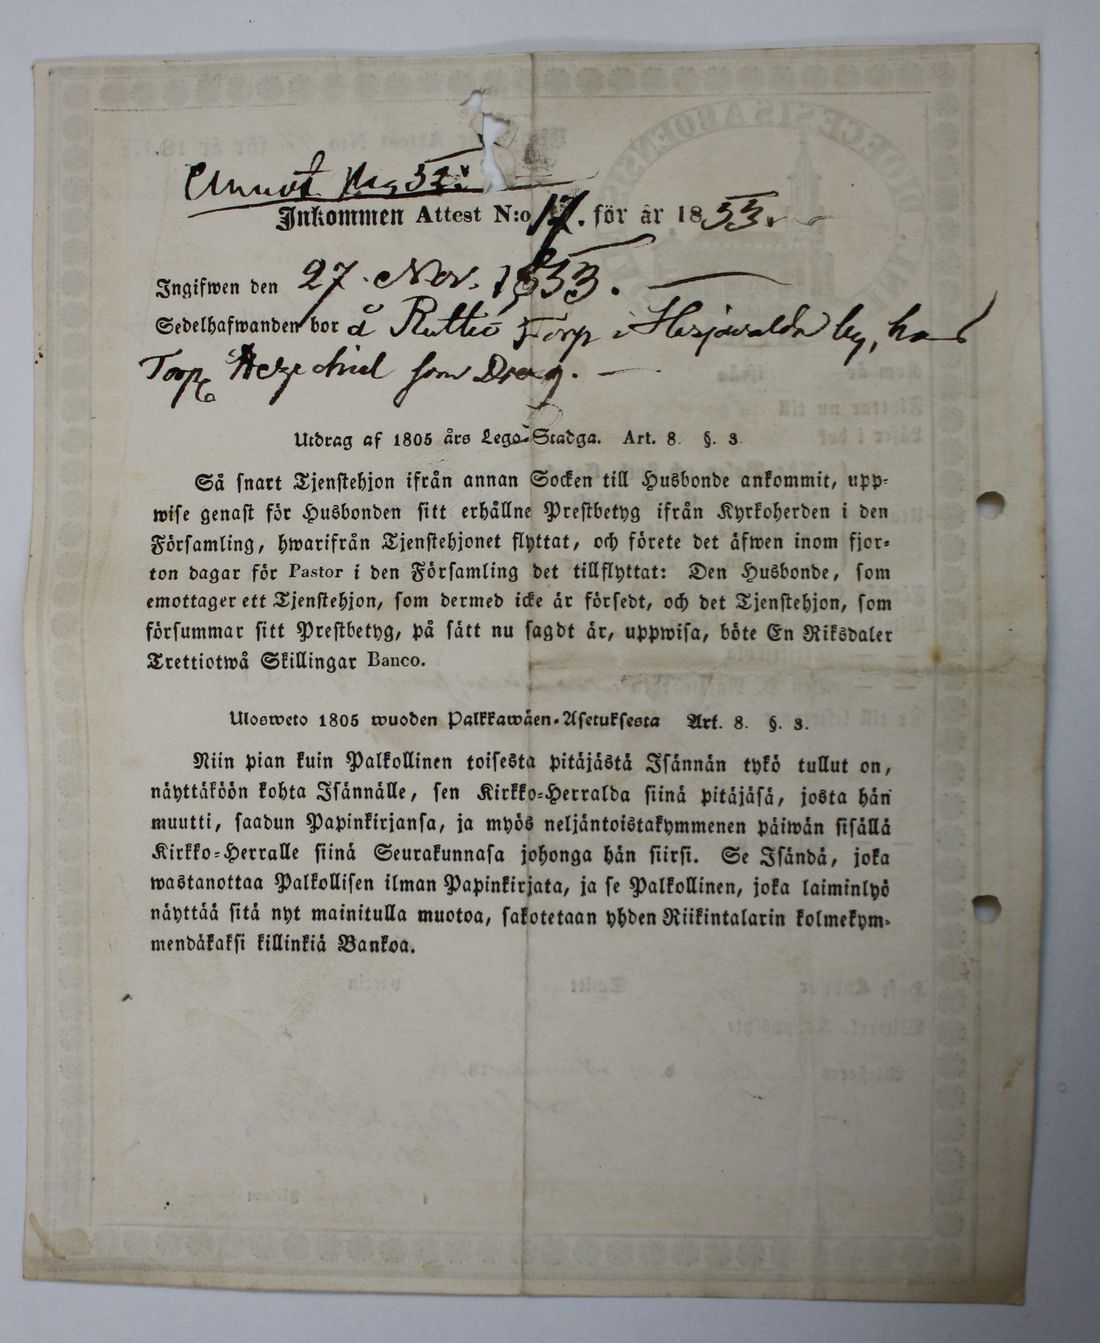 Inkommen Attest N:o 17. för år 1853.
Ingifwen den 27. Nov. 1853.
Sedelhafwanden bor å Ruttio Torp i Hesjowalda by, hos
Torp. Hezechiel som Dreng.
Utdrag af 1805 års Lego-Stadga. Art. 8. §. 3.
Så snart Tjenstehjon ifrån annan Socken till Husbonde ankommit, upp-
wise genast för Husbonden sitt erhållne Prestbetyg ifrån Kyrkoherden i den
Församling, hwarifrån Tjenstehjonet flyttat, och förete det äfwen inom fjor-
ton dagar för Pastor i den Församling det tillflyttat: Den Husbonde, som
emottager ett Tjenstehjon, som dermed icke är försedt, och det Tjenstehjon, som
försummar sitt Prestbetyg, på sätt nu sagdt är, uppwisa, böte En Riksdaler
Trettiotwå Skillingar Banco.
Ulosweto 1805 wuoden Palkkawäen-Asetuksesta Art. 8. §. 3.
Niin pian kuin Palkollinen toisesta pitäjästä Isännän tykö tullut on,
näyttäköön kohta Isännälle, sen Kirkko-Herralda siinä pitäjäsä, josta hän
muutti, saadun Papinkirjansa, ja myös neljäntoistakymmenen päiwän sisällä
Kirkko-Herralle siinä Seurakunnasa johonga hän siirsi. Se Isändä, joka
wastanottaa Palkollisen ilman Papinkirjata, ja se Palkollinen, joka laiminlyö
näyttää sitä nyt mainitulla muotoa, sakotetaan yhden Riikintalarin kolmekym-
mendäkaksi killinkiä Bankoa.